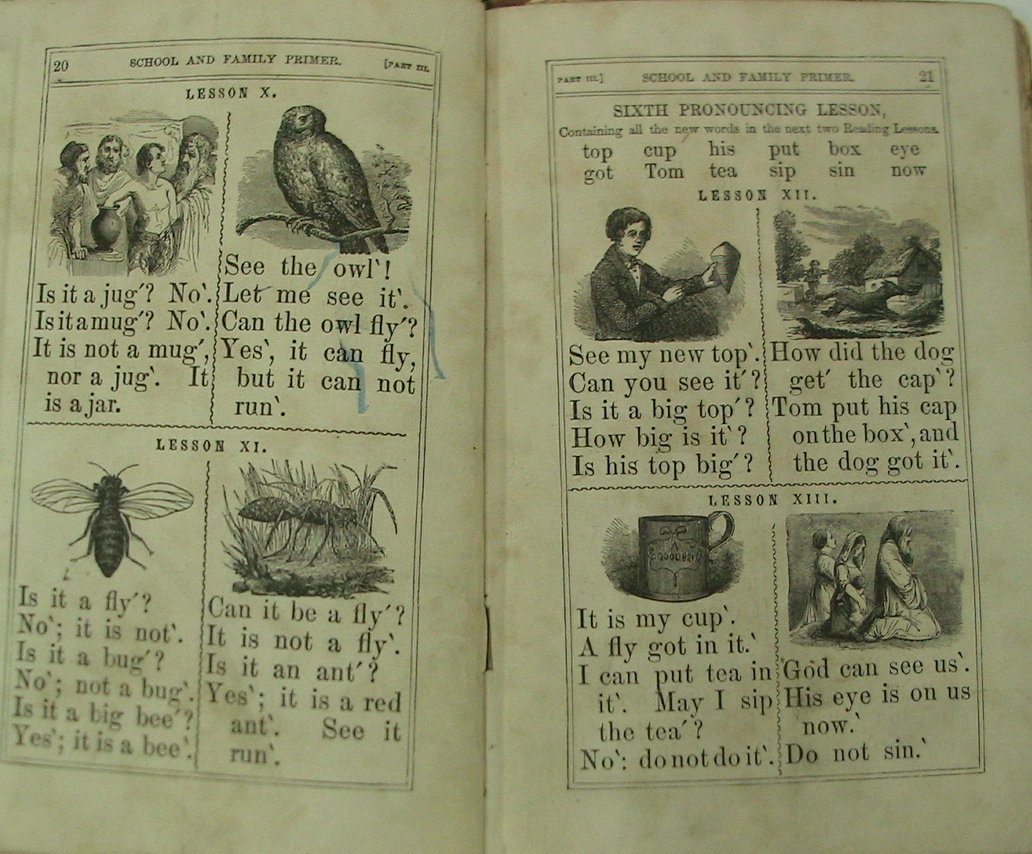 20 SCHOOL AND FAMILY PRIMER. [PART III.
LESSON X.
Is it a jug′? No‵.
Is it a mug′? No‵.
It is not a mug′,
nor a jug‵. It
is a jar.
See the owl‵!
Let me see it‵.
Can the owl fly′?
Yes‵, it can fly,
but it can not
run‵.
LESSON XI.
Is it a fly′?
No‵; it is not‵.
Is it a bug′?
No‵; not a bug‵.
Is it a big bee′?
Yes‵; it is a bee‵.
Can it be a fly′?
It is not a fly‵.
Is it an ant′?
Yes‵; it is a red
ant‵. See it
run‵.
PART III.] SCHOOL AND FAMILY PRIMER. 21
SIXTH PRONOUNCING LESSON,
Containing all the new words in the next two Reading Lessons.
top cup his put box eye
got Tom tea sip sin now
LESSON XII.
See my new top‵.
Can you see it′?
Is it a big top′?
How big is it‵?
Is his top big′?
How did the dog
get′ the cap‵?
Tom put his cap
on the box‵, and
the dog got it‵.
LESSON XIII.
It is my cup‵.
A fly got in it.‵
I can put tea in
it‵. May I sip
the tea′?
No‵: do not do it‵.
God can see us‵.
His eye is on us
now.‵
Do not sin.‵